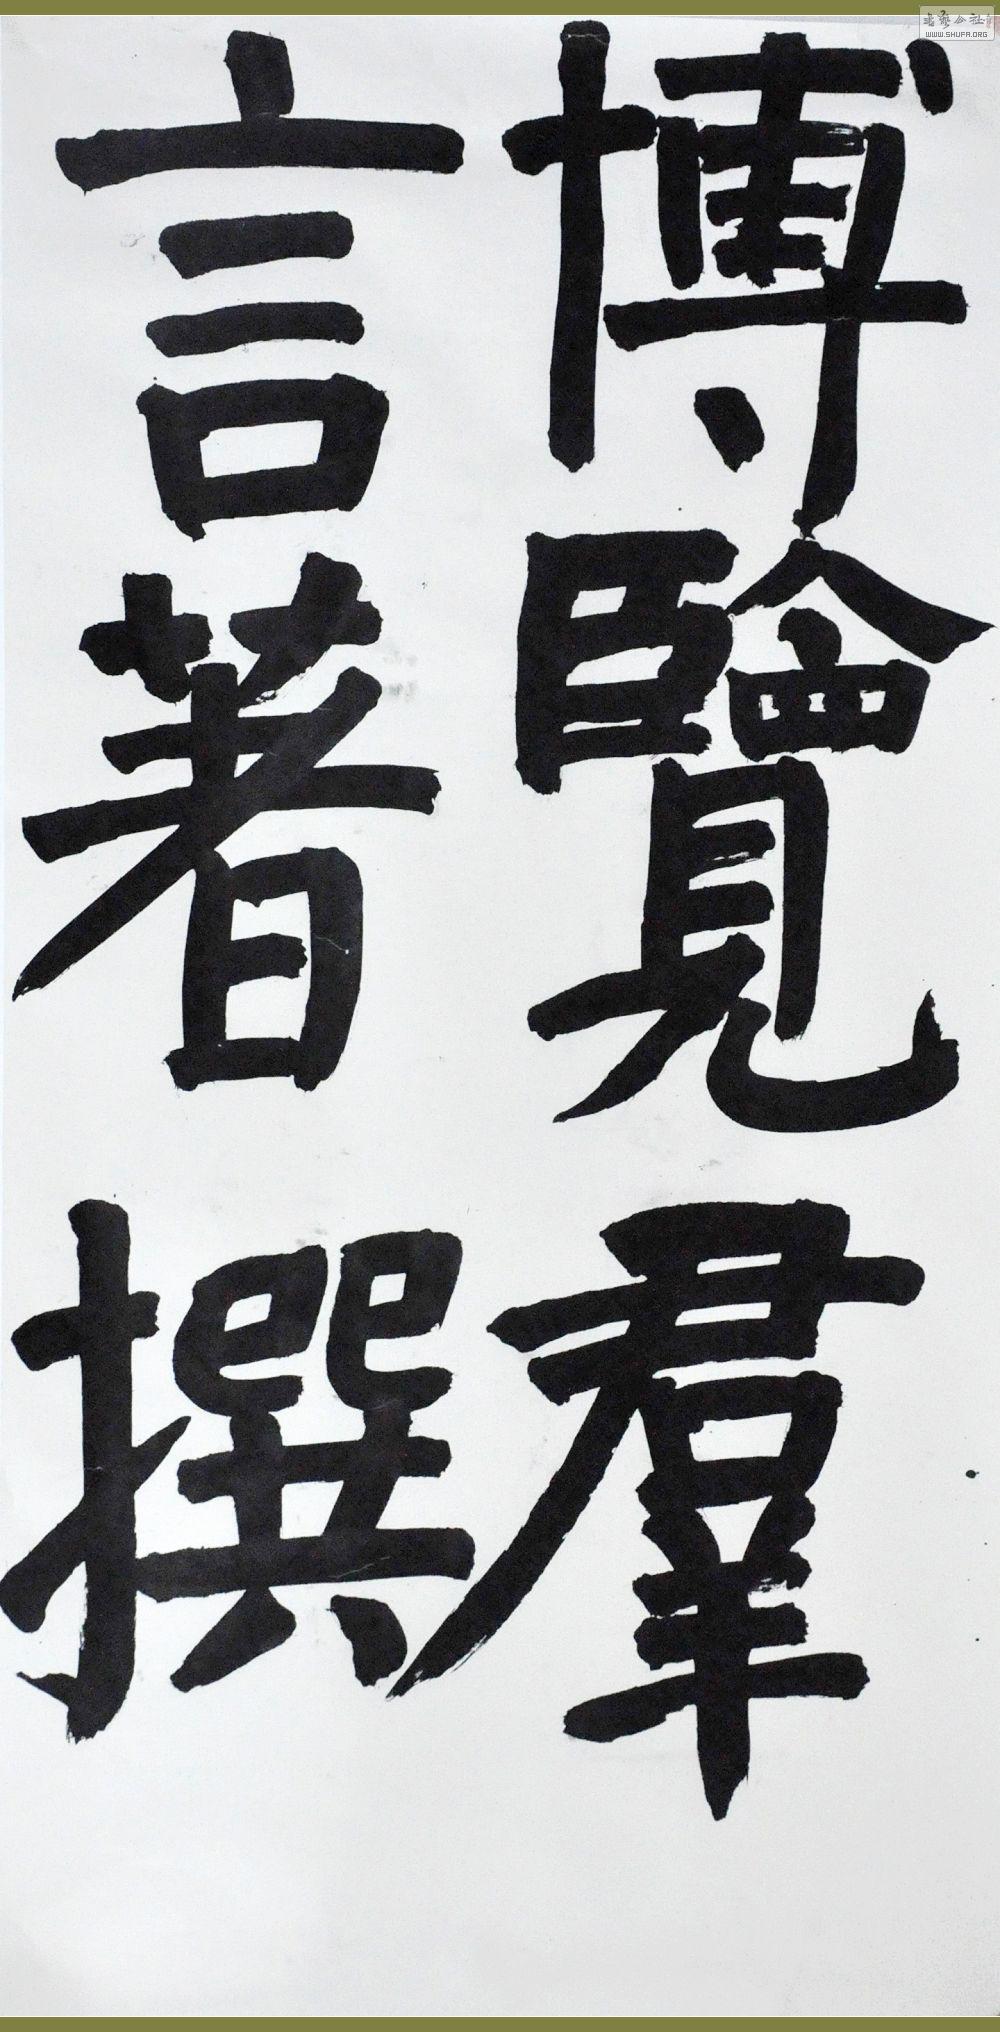 博覽羣
言著撰
书藝公社
WWW.SHUFA.ORG